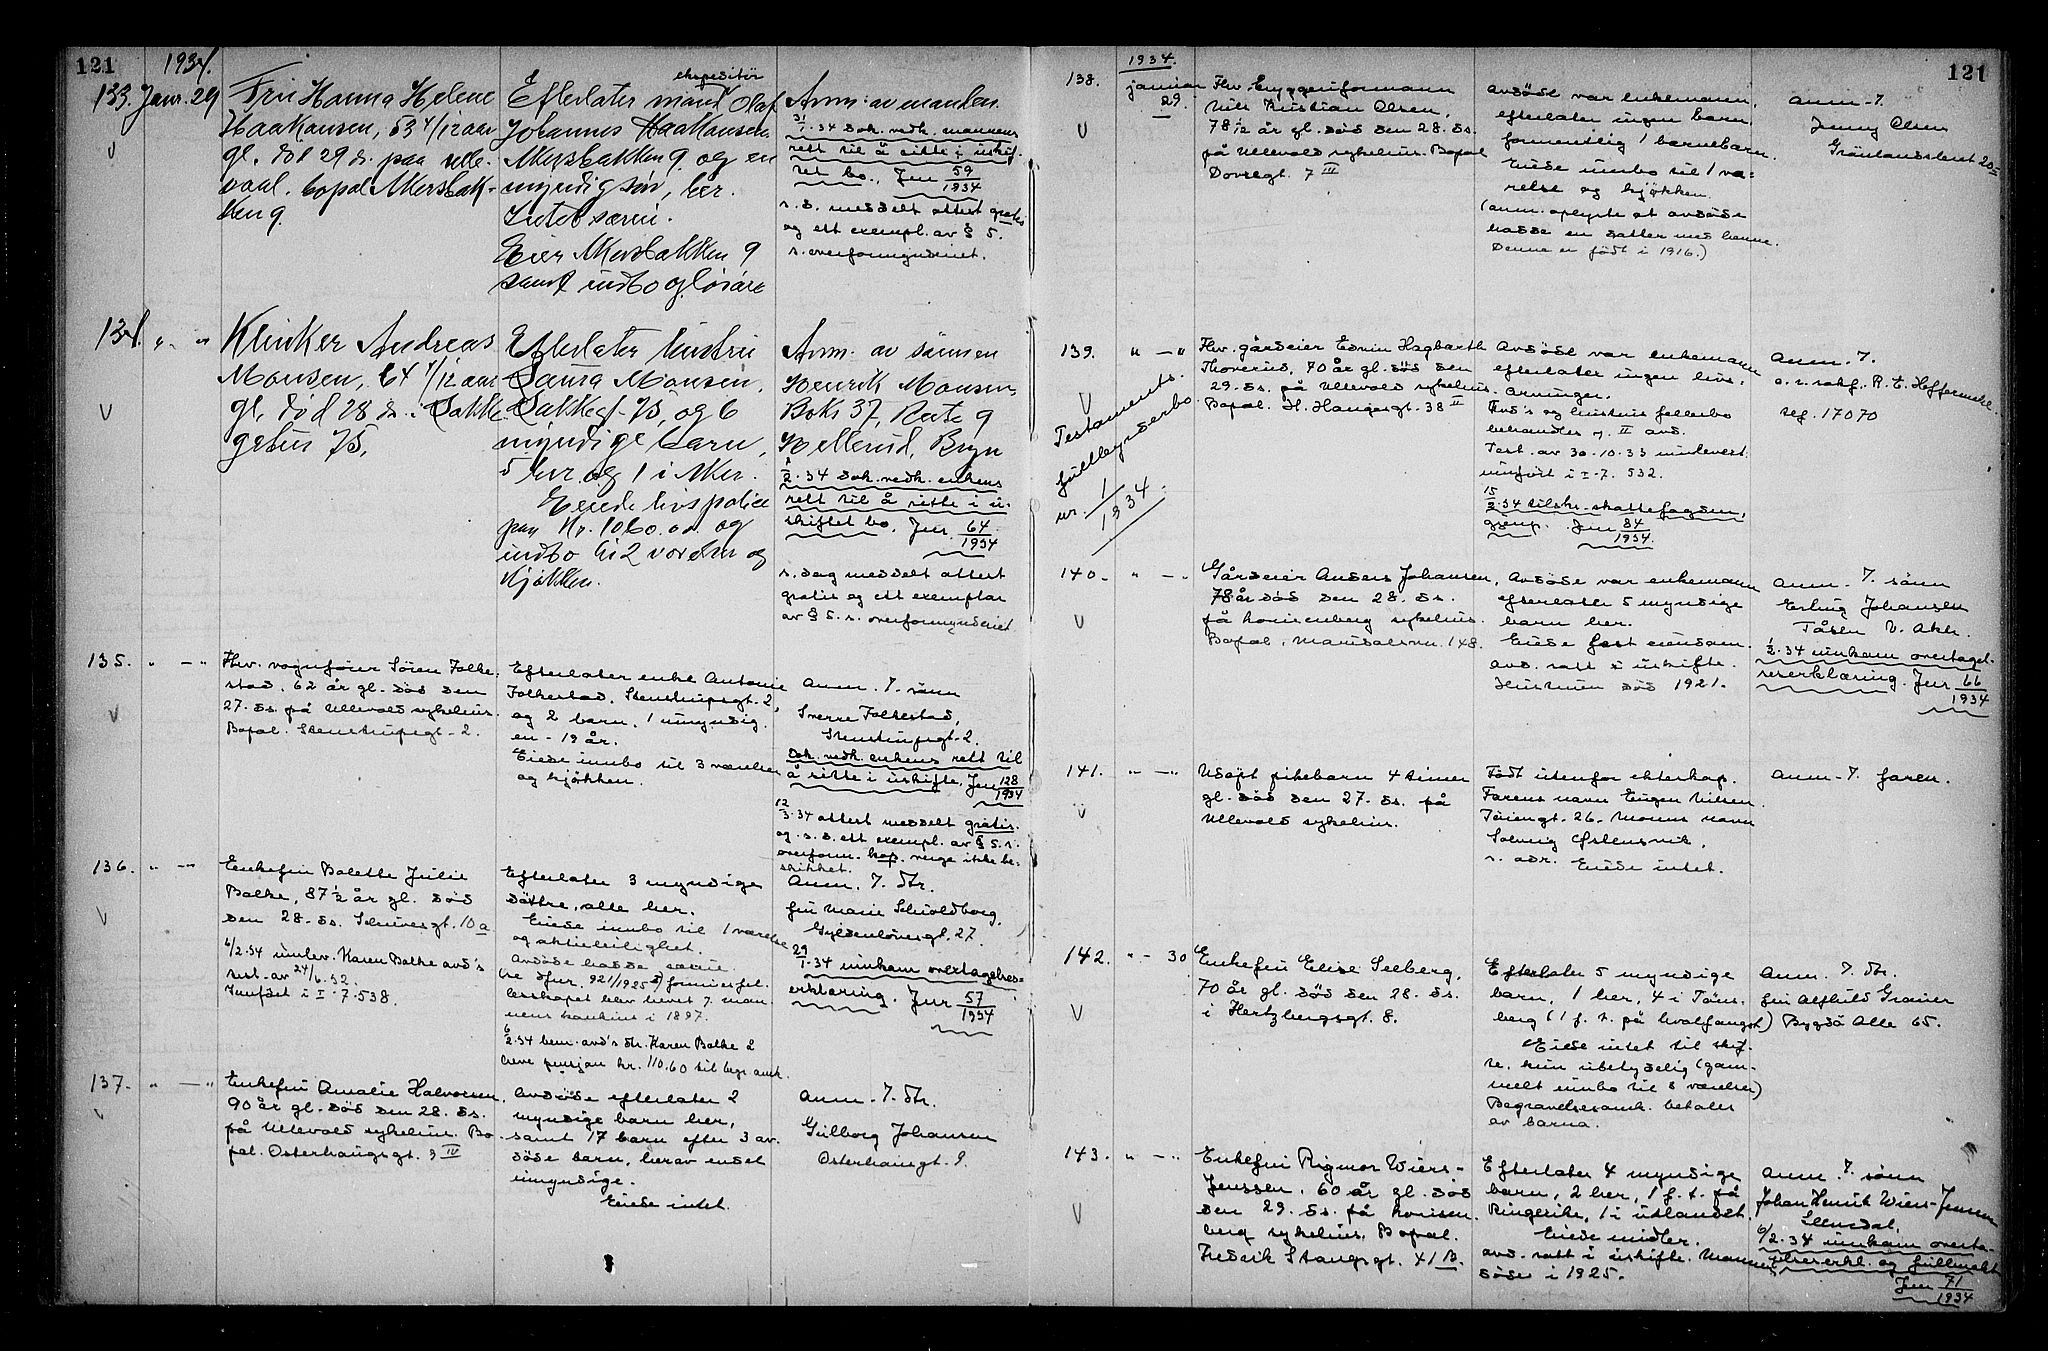 121
1934.
133. Janr. 29
Fru Hanna Helene
Haakansen, 53 4/12 aar
gl. død 29 ds. paa Ulle-
vaal. bopæl Akersbak-
ken 9
ekspeditør
Efterlater mand Olaf
Johannes Haakansen
Akersbakken 9 og en
myndig søn, her.
Intet særeie.
Eier Akersbakken 9
samt indbo og løsøre
Anm: av manden.
31/1-34 dok. vedk. mannens
rett til å sitte i uskif-
tet bo. Jnr 59/1934
s. d. meddelt attest gratis
og ett exempl. av § 5.
s. overformynderiet.
134. " - "
Klinker Andreas
Monsen, 64 1/12 aar
gl. død 28 ds. i Bakke
gaten 75.
Efterlater hustru
Laura Monsen,
Bakkegt 75, og 6
myndige barn,
5 her og 1 i Aker.
Eiede livspolice
paa Kr. 1060.00 og
indbo til 2 værelser og
kjøkken.
Anm: av sønnen
Henrik Monsen
Boks 37, Rute 9
Hellerud, Bryn
1/2-34 dok. vedk. enkens
rett til å sitte i u-
skiftet bo. Jnr 64/1934
s. dag meddelt attest
gratis og ett exemplar
av § 5. s. overformynderiet
135. " - "
Fhv. vognfører Søren Folke-
stad, 62 år gl. død den
27. ds. på Ullevold sykehus.
Bopal. Stenstrupsgt. 2.
Efterlater enke Antonie
Folkestad, Stenstrupsgt. 2,
og 2 barn, 1 umyndig
en - 19 år.
Eiede innbo til 3 værelser
og kjøkken.
Anm. 7. sønn
Sverre Folkestad,
Stenstrupsgt. 2.
Dok. vedk. enkens rett til
å sitte i uskifte. Jnr 128/1934
12/3-34 attest meddelt gratis.
og s. d. ett exempl. av § 5. s.
overform. kap. verge ikke be-
skikket.
136. " - "
Enkefru Bolette Julie
Balke, 87 1/2 år gl. død
den 28. ds. Schivesgt. 10 a
6/2-34 innlev. Karen Balke avd's
test. av 24/6-32.
Innført i I-7-538.
Efterlater 3 myndige
døttre, alle her.
Eiede innbo til 1 værelse
og aktieleilighet.
Avdøde hadde særeie.
(se Jnr. 921/1925) formuesfel-
lesskapet blev hevet 7. man-
nens konkurs i 1897.
6/2-34 bem. avd's dtr. Karen Balke å
heve pensjon kr. 110.60 til begr. omk.
Anm. 7. dtr.
fru Marie Scholdborg,
Gyldenløvesgt. 27.
29/1-34 innkom overtagelses-
erklæring. Jnr 57/1934
137. " - "
Enkefru Amalie Halvorsen
90 år gl. død den 28. ds.
på Ullevold sykehus. Bo-
pal. Osterhausgt. 9 IV
Avdøde efterlater 2
myndige barn her,
samt 17 barn efter 3 av-
døde barn, herav endel
umyndige.
Eiede intet.
Anm. 7. dtr.
Gulborg Johansen
Osterhausgt. 9.
121
1934.
138. januar 29.
Fhv. bryggeriformann
Nils Kristian Olsen,
78 1/2 år gl. død den 28. ds.
på Ullevold sykehus. Bopal
Dovregt. 7 III
Avdøde var enkemann,
efterlater ingen barn,
formentlig 1 barnebarn.
Eiede innbo til 1 væ-
relse og kjøkken.
(anm. oplyste at avdøde
hadde en datter med henne.
Denne er født i 1916.)
Anm. 7.
Jenny Olsen
Grønlandsleret 20 II
139. " - "
Testaments-
fullbyrderbo
nr. 1/1934.
Fhv. gårdeier Edvin Hagbarth
Thoverud, 70 år gl. død den
29. ds. på Ullevold sykehus.
Bopal. H. Haugesgt. 38 II
Avdøde var enkemann
efterlater ingen livs-
arvinger.
Avd's og hustrus fellesbo
behandles 7. II avd.
Test. av 30-10-33 innlevert
innført i I-7. 532.
15/2-34 tilskr. skattefogden,
gjenp. Jnr 84/1934.
Anm. 7.
o. r. sakf. R. E. Heffermehl.
tlf. 17070
140. " - "
Gårdeier Anders Johansen,
78 år død den 28. ds.
på Lovisenberg sykehus.
Bopal. Maridalsvn. 148.
Avdøde var enkemann
efterlater 5 myndige
barn her.
Eiede fast eiendom.
avd. satt i uskifte.
Hustruen død 1921.
Anm. 7. sønn
Erling Johansen
Tåsen V. Aker.
1/2-34 innkom overtagel-
seserklæring. Jnr 66/1934
141. " - "
Udøpt pikebarn 4 timer
gl. død den 27. ds. på
Ullevold sykehus.
Født utenfor ekteskap.
Farens navn Eugen Nilsen
Tøiengt. 26. Morens navn
Solveig Østensvik,
s. adr. Eiede intet.
Anm. 7. faren.
142. " - 30
Enkefru Elise Seeberg,
70 år gl. død den 28. ds.
i Hertzbergsgt. 8.
Efterlater 5 myndige
barn, 1 her, 4 i Tøns-
berg (1 f. t. på hvalfangst)
Eiede intet til skif-
te, kun ubetydelig (gam-
melt innbo til 2 værelser)
Begravelsesomk. betales
av barna.
Anm. 7. dtr.
fru Alfhild Graner
Bygdø Alle 65.
143. " - "
Enkefru Rigmor Wiers-
Jenssen, 60 år gl. død
den 29. ds. på Lovisen-
berg sykehus. Bopal.
Fredrik Stangsgt. 41 B.
Efterlater 4 myndige
barn, 2 her, 1 f. t. på
Ringerike, 1 i utlandet.
Eiede midler.
avd. satt i uskifte. Mannen
døde i 1925.
Anm. 7. sønn
Johan Henrik Wiers-Jenssen
6/2-34 innkom overta-
gelseserkl. og fullmakt
Jnr 71/1934